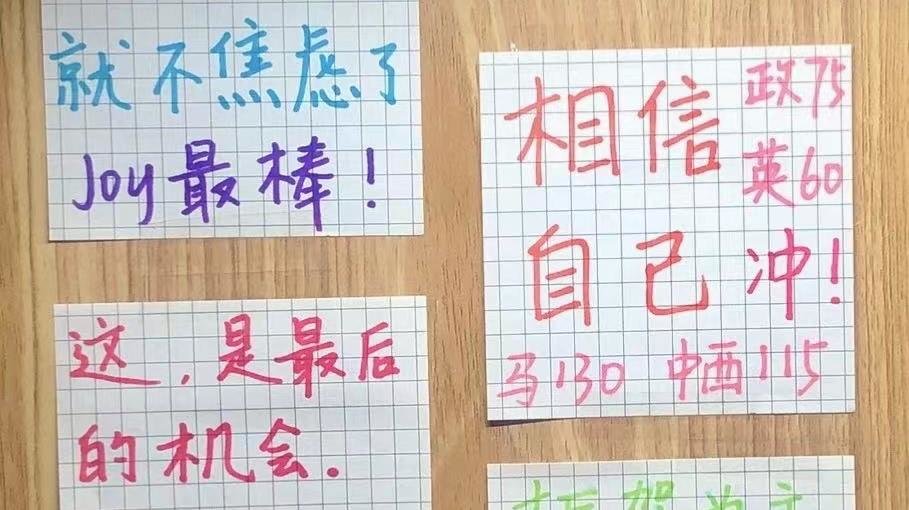 就不焦虑了
Joy最棒！
相信
政75
英60
自己
冲！
马130 中西115
这，是最后
的机会.